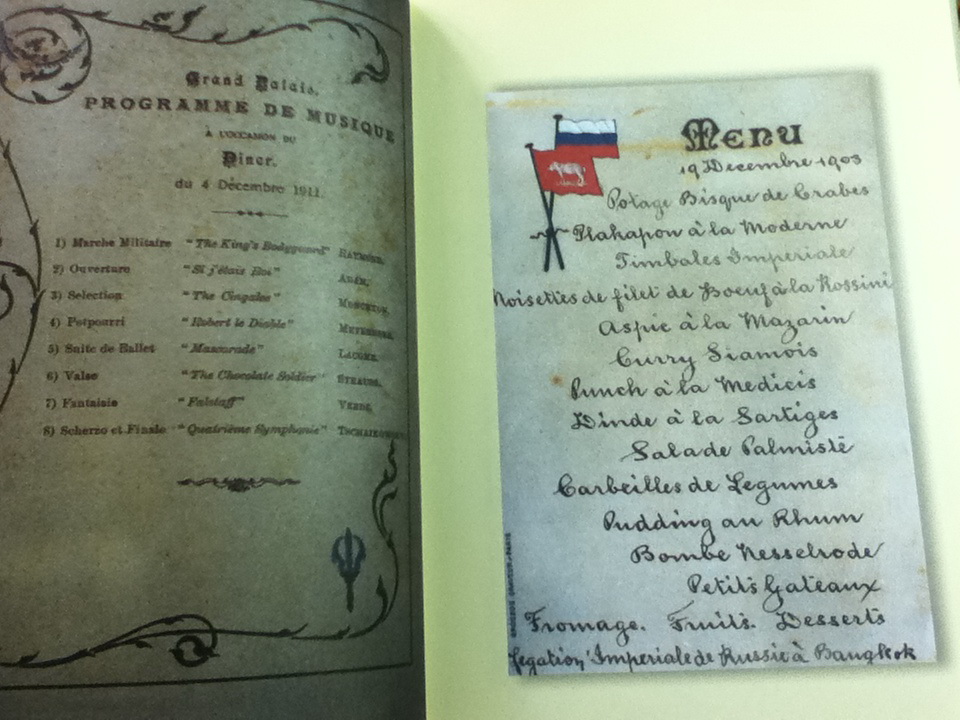 Grand Palais.
PROGRAMME DE MUSIQUE
À L'OCCASION DU
Diner.
du 4 Décembre 1911.
1) Marche Militaire "The King's Bodyguard" RAYMOND.
2) Ouverture "Si j'étais Roi" ADAM.
3) Selection "The Cingalee" MONCKTON.
4) Potpourri "Robert le Diable" MEYERBEER.
5) Suite de Ballet "Mascarade" LACOME.
6) Valse "The Chocolate Soldier" STRAUSS.
7) Fantaisie "Falstaff" VERDI.
8) Scherzo et Finale "Quatrième Symphonie" TSCHAIKOWSKY
Menu
19 Decembre 1903
Potage Bisque de Crabes
Plakapon à la Moderne
Timbales Imperiale
Noisettes de filet de Boeuf à la Rossini
Aspic à la Mazarin
Curry Siamois
Punch à la Medicis
Dinde à la Sartiges
Salade Palmiste
Corbeilles de Legumes
Pudding au Rhum
Bombe Nesselrode
Petits Gateaux
Fromage. Fruits. Desserts
Legation Imperiale de Russie à Bangkok